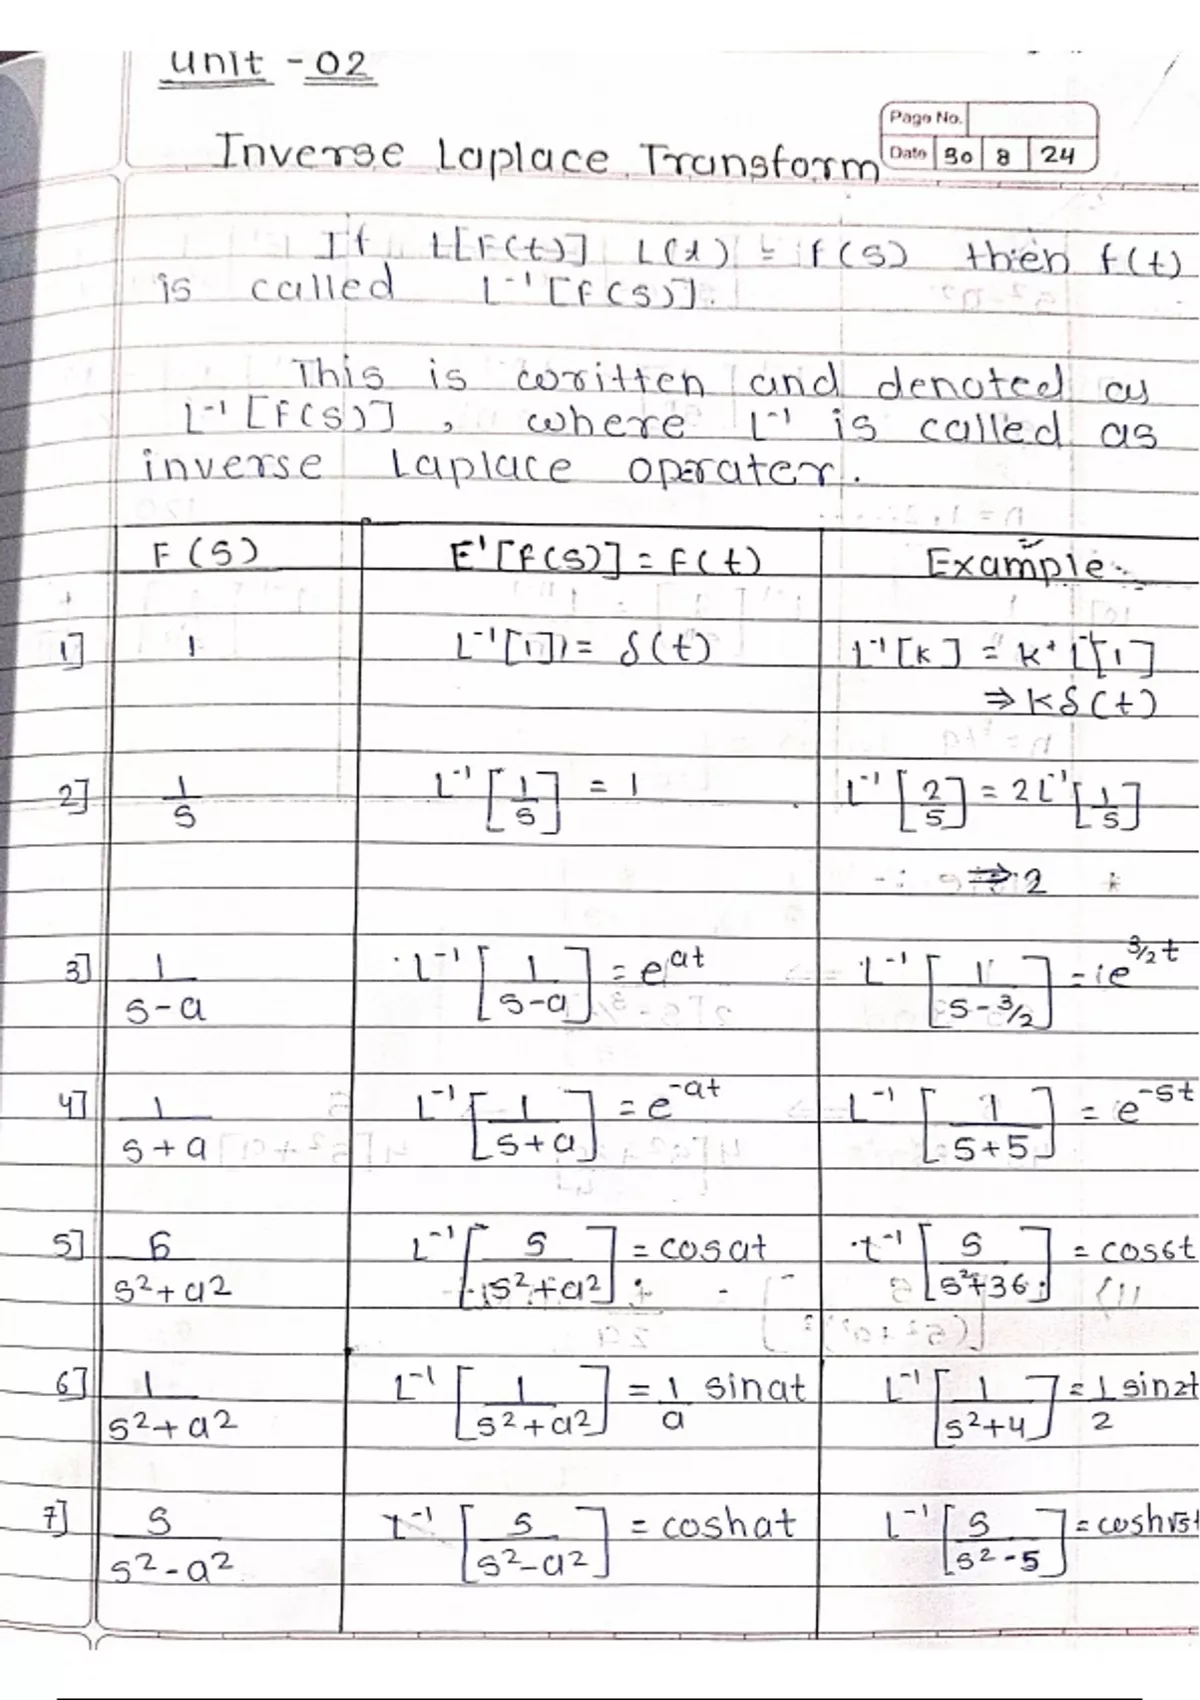 Unit - 02
Page No.
Date 30 8 24
Inverse Laplace Transform
If L[F(t)] L(t) = f(s) then f(t)
is called L⁻¹[f(s)].
This is written and denoted as
L⁻¹[f(s)], where L⁻¹ is called as
inverse Laplace operater.
F(s) E'[f(s)] = F(t) Example
1] 1 L⁻¹[1] = δ(t) L⁻¹[k] = k·L⁻¹[1]
⇒ kδ(t)
2] 1/s L⁻¹[1/s] = 1 L⁻¹[2/s] = 2L⁻¹[1/s]
⇒ 2
3] 1/(s-a) L⁻¹[1/(s-a)] = e^(at) L⁻¹[1/(s-3/2)] = e^(3/2 t)
4] 1/(s+a) L⁻¹[1/(s+a)] = e^(-at) L⁻¹[1/(s+5)] = e^(-5t)
5] s/(s²+a²) L⁻¹[s/(s²+a²)] = cosat L⁻¹[s/(s²+36)] = cos6t
6] 1/(s²+a²) L⁻¹[1/(s²+a²)] = 1/a sinat L⁻¹[1/(s²+4)] = 1/2 sin2t
7] s/(s²-a²) L⁻¹[s/(s²-a²)] = coshat L⁻¹[s/(s²-5)] = cosh√5t